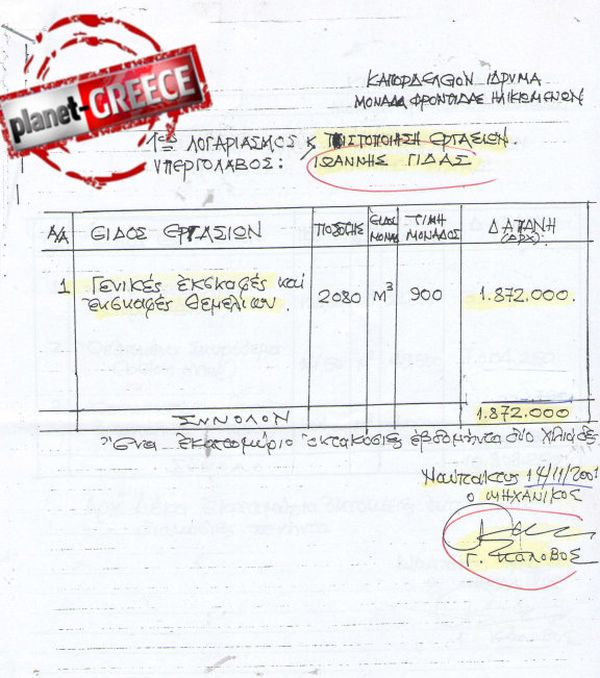 planet-GREECE
ΚΑΠΟΡΔΕΛΕΙΟΝ ΙΔΡΥΜΑ
ΜΟΝΑΔΑ ΦΡΟΝΤΙΔΑΣ ΗΛΙΚΩΜΕΝΩΝ
1ος ΛΟΓΑΡΙΑΣΜΟΣ & ΠΙΣΤΟΠΟΙΗΣΗ ΕΡΓΑΣΙΩΝ.
ΥΠΕΡΓΟΛΑΒΟΣ: ΙΩΑΝΝΗΣ ΓΙΔΑΣ
Α/Α ΕΙΔΟΣ ΕΡΓΑΣΙΩΝ ΠΟΣΟΤΗΣ ΕΙΔΟΣ ΜΟΝΑΔ ΤΙΜΗ ΜΟΝΑΔΟΣ ΔΑΠΑΝΗ (ΔΡΧ)
1 Γενικές εκσκαφές και
εκσκαφές θεμελίων. 2080 Μ3 900 1.872.000
ΣΥΝΟΛΟΝ 1.872.000
Ένα εκατομύριο οκτακόσιες εβδομήντα δύο χιλιάδες
Ναύπακτος 14/11/2001
Ο ΜΗΧΑΝΙΚΟΣ
Γ. ΚΑΛΟΒΟΣ